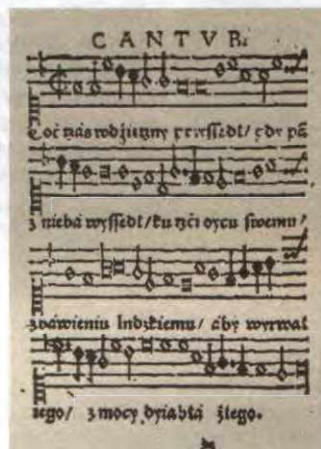 CANTVS.
Oć nás rodźieżny przyssedł / gdy pá
z niebá wyssedł / ku czći oycu swemu /
zbáwieniu ludzkiemu / áby wyrwał
iego / z mocy dyiabłá złego.